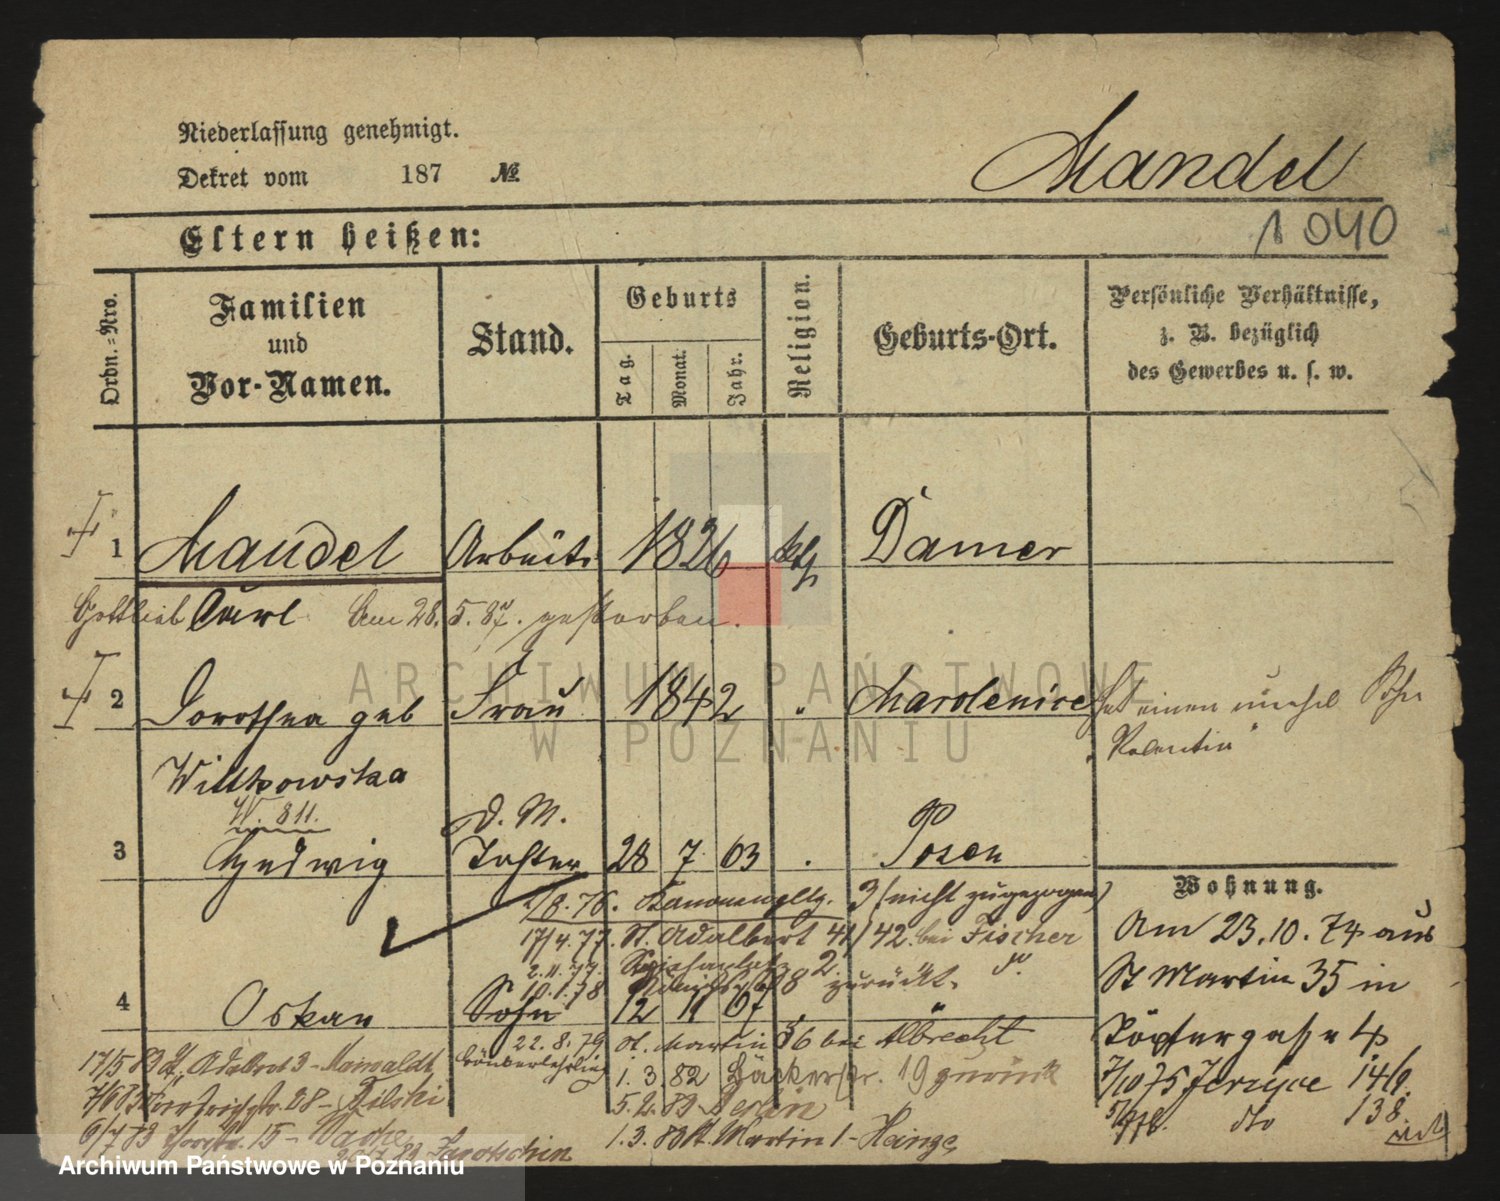 Niederlassung genehmigt.
Dekret vom 187 №
Mandel
1040
Eltern heißen:
Ordn.=Nro.
Familien
und
Vor-Namen.
Stand.
Geburts
Tag.
Monat.
Jahr.
Religion.
Geburts-Ort.
Persönliche Verhältnisse,
z. B. bezüglich
des Gewerbes u. s. w.
1 Mandel Arbeits 1826 kth Damer
Gottlieb Carl Am 28. 5. 87. gestorben.
2 Dorothea geb Frau 1842 " einen unehel Sohn
Wittkowska
W. 811.
D. M.
3 Hedwig Tochter 28 7 63 Posen
Wohnung.
Am 23. 10. 74 aus
St Martin 35 in
Töpfergasse 4
7/10 75 Jerzyce 146.
dto 138.
2/8. 76. Kanonenpltz. 3 (nicht zugezogen)
17/4. 77. St. Adalbert 41/42. bei Fischer
2. 11. 77. 2.
10. 1. 78. 8 zurück.
4 Oskar Sohn 12 11 67 "
22. 8. 79 St. Martin 56 bei Albrecht
1. 3. 82 Bäckerstr. 19 zurück
5. 2. 83 Berlin
1. 3. 83 St. Martin 1 - Heinze
17/5 83 St. Adalbert 3 -
7/6 83 28 -
6/7 83 15 -
83 Jarotschin
ARCHIWUM PAŃSTWOWE
W POZNANIU
Archiwum Państwowe w Poznaniu